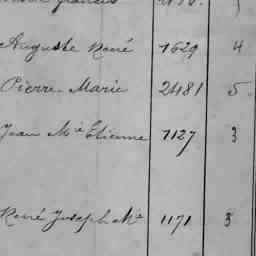 Auguste René 1629 4
Pierre Marie 2481 5.
Jean Mie Etienne 1127 3
René Joseph Me 1171 3